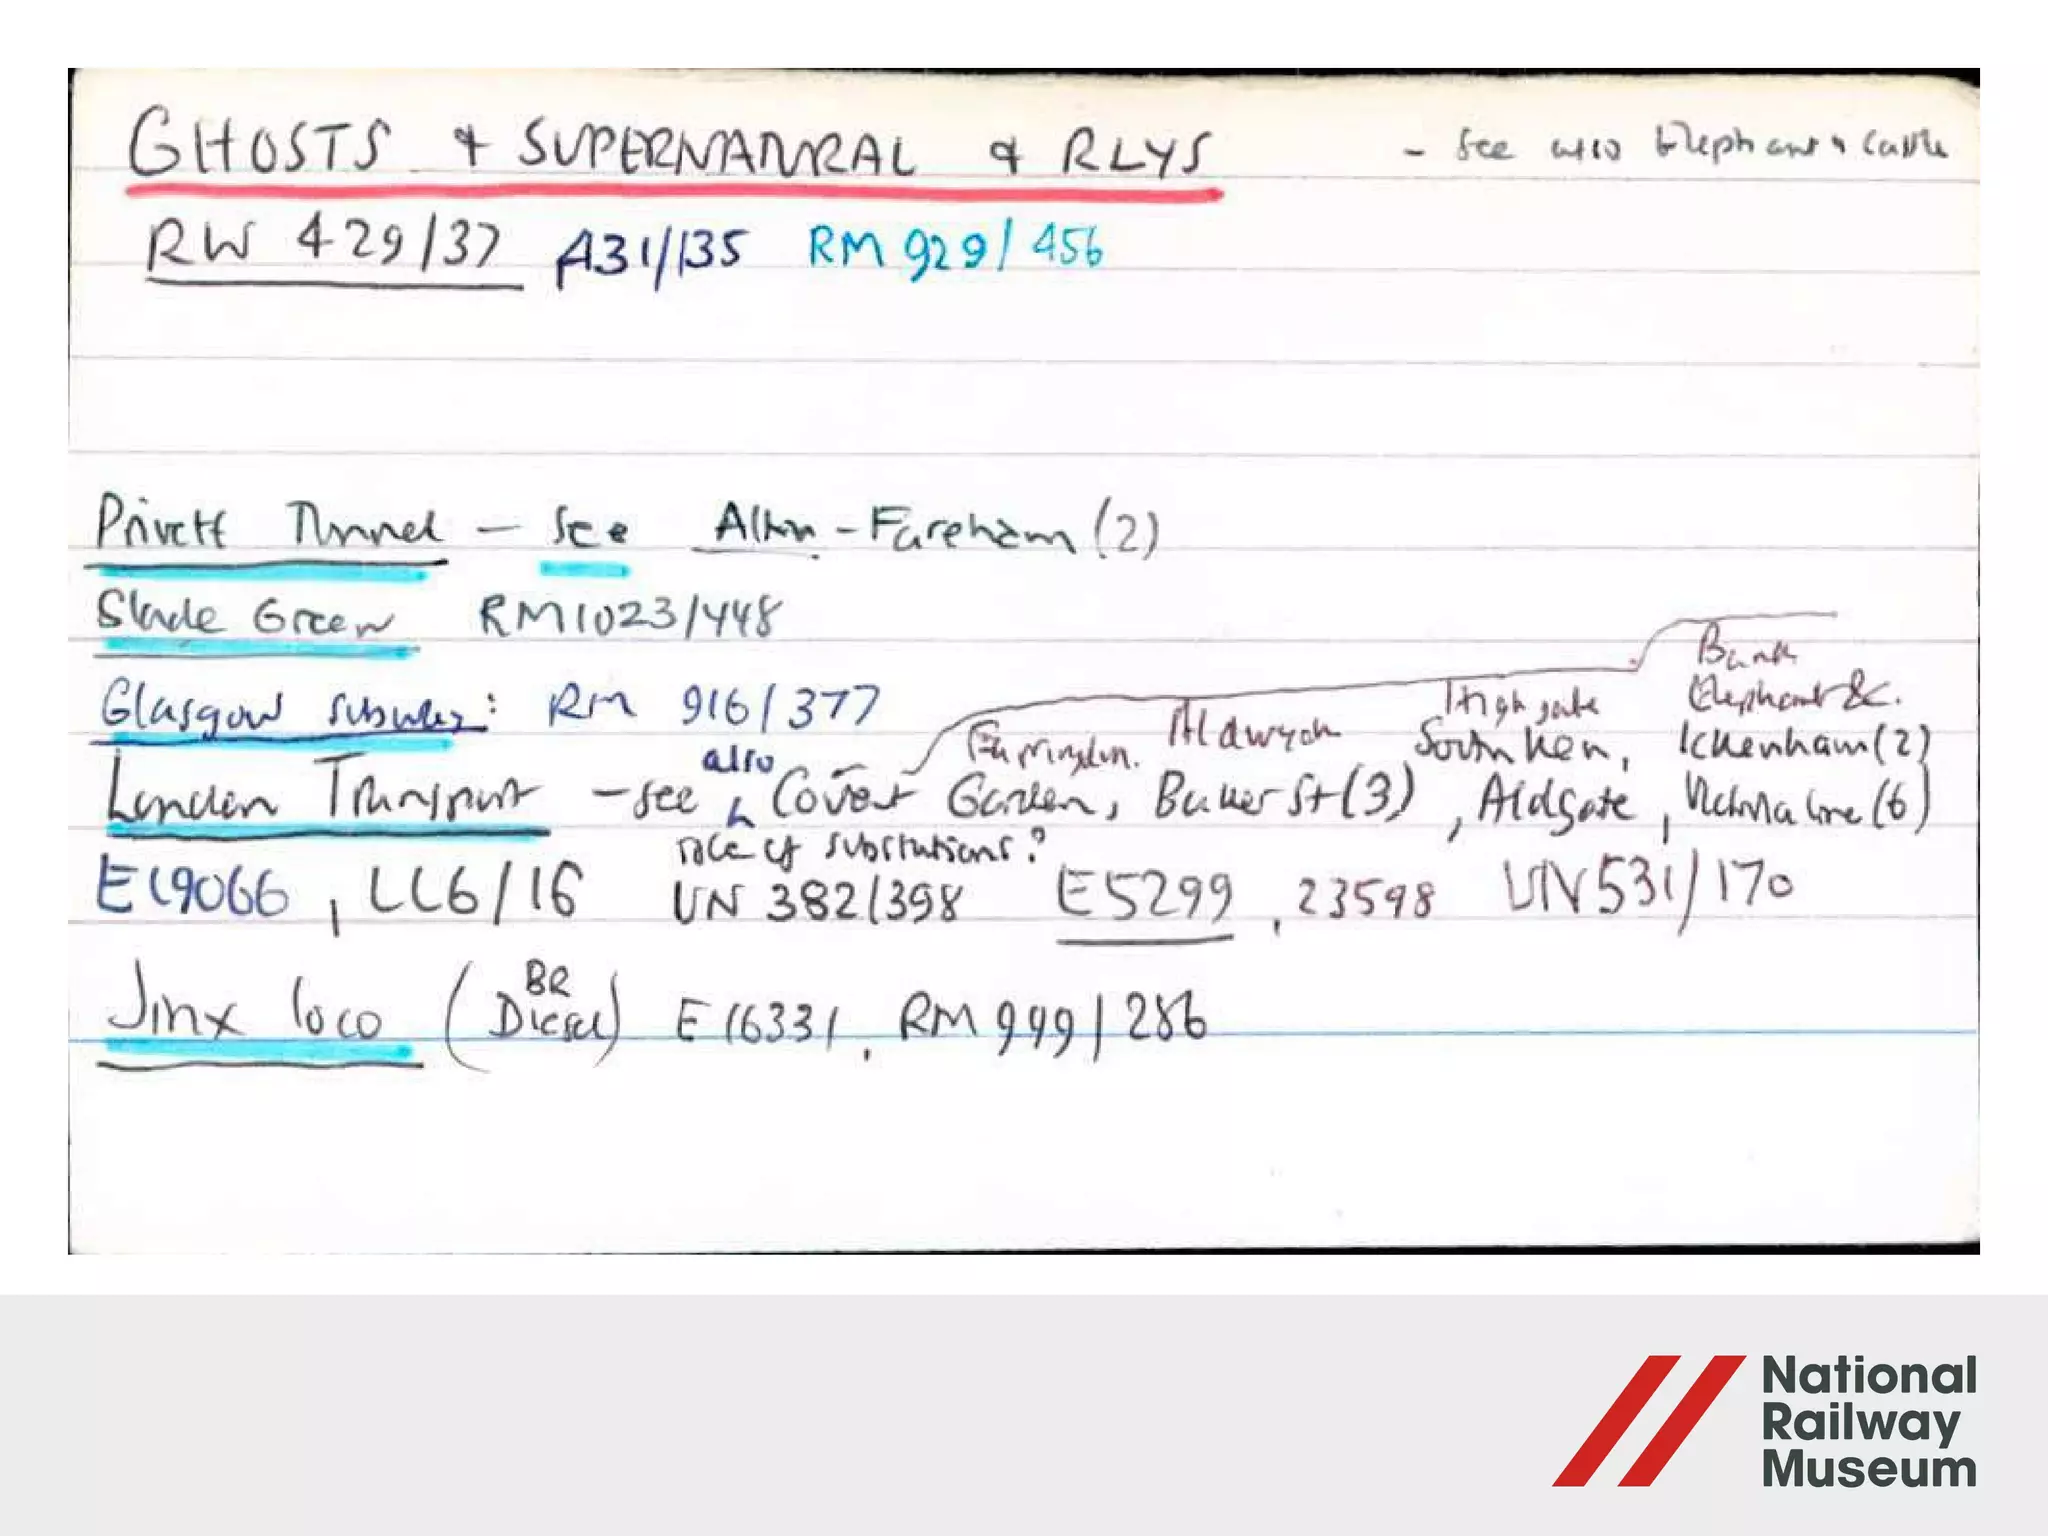 GHOSTS & SUPERNATURAL & RLYS - see also Elephant & Castle
RW 429/37 A31/135 RM 929/456
Privett Tunnel - see Alton-Fareham (2)
Slade Green RM1023/448
Glasgow subway: RM 916/377
Farringdon. Aldwych Highgate South Ken, Bank Elephant &c. Ickenham (2)
London Transport - see also Covent Garden, Baker St (3), Aldgate, Victoria line (6)
role of substations?
E19066, LL6/16 UN 382/398 E5299, 23598 UN531/170
Jinx loco (BR Diesel) E16331, RM 999/286
National
Railway
Museum